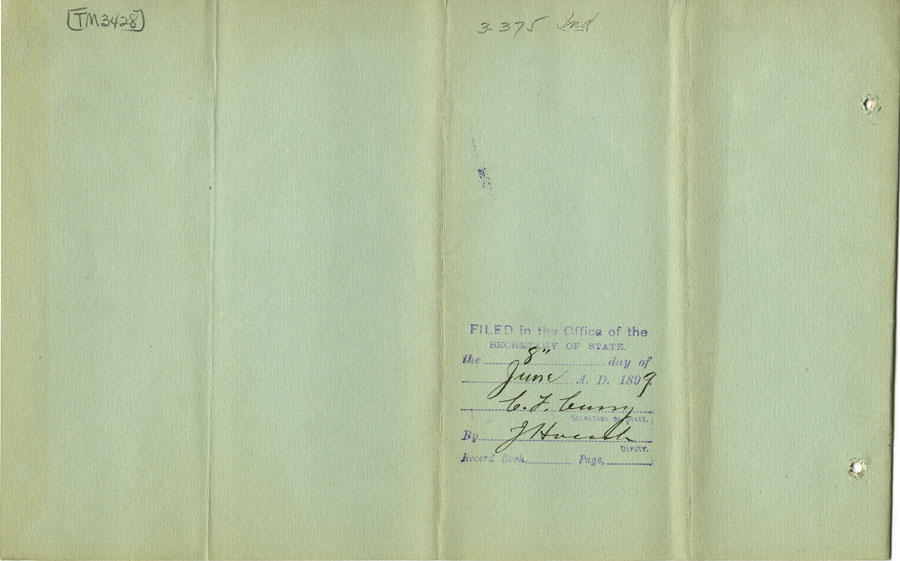 [TM3428]
3-375 Ind
FILED in the Office of the
SECRETARY OF STATE.
the 8" day of
June A. D. 1899
C. F. Curry
SECRETARY OF STATE.
By J Hoesch
DEPUTY.
Record Book, Page,